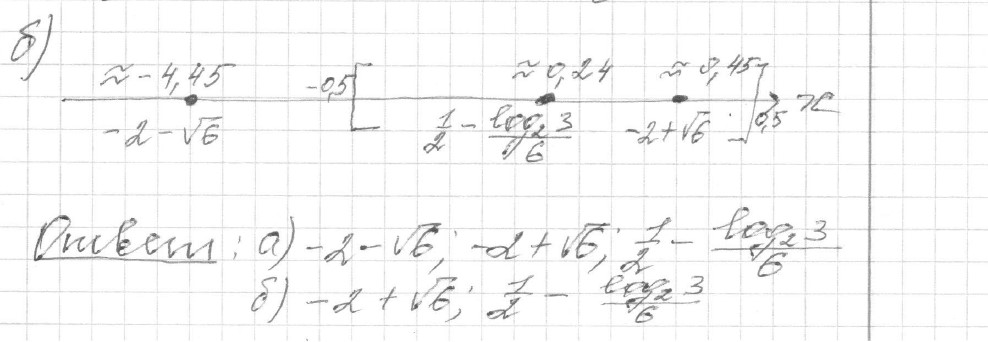 б)
≈ -4,45 -0,5 ≈ 0,24 ≈ 0,45
-2-√6 1/2 - log₂3/6 -2+√6 0,5 x
Ответ: а) -2-√6; -2+√6; 1/2 - log₂3/6
б) -2+√6; 1/2 - log₂3/6